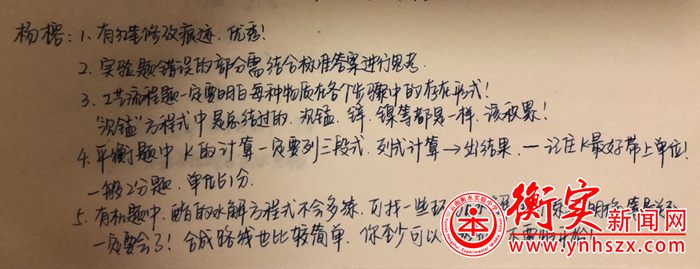 杨楷:1.有红笔修改痕迹,优秀!
2.实验题错误的部分需结合标准答案进行思考.
3.工艺流程题一定要明白每种物质在各个步骤中的存在形式!
"沉锰"方程式中是总结过的,沉锰、锌、镍等都是一样,该积累!
4.平衡题中K的计算一定要列三段式,列式计算→出结果.一记住K最好带上单位!
一般2分题,单位占1分.
5.有机题中,酯的水解方程式不会多练,可找一些
一定要会了!合成路线也比较简单,你至少可以
衡实新闻网
www.ynhszx.com